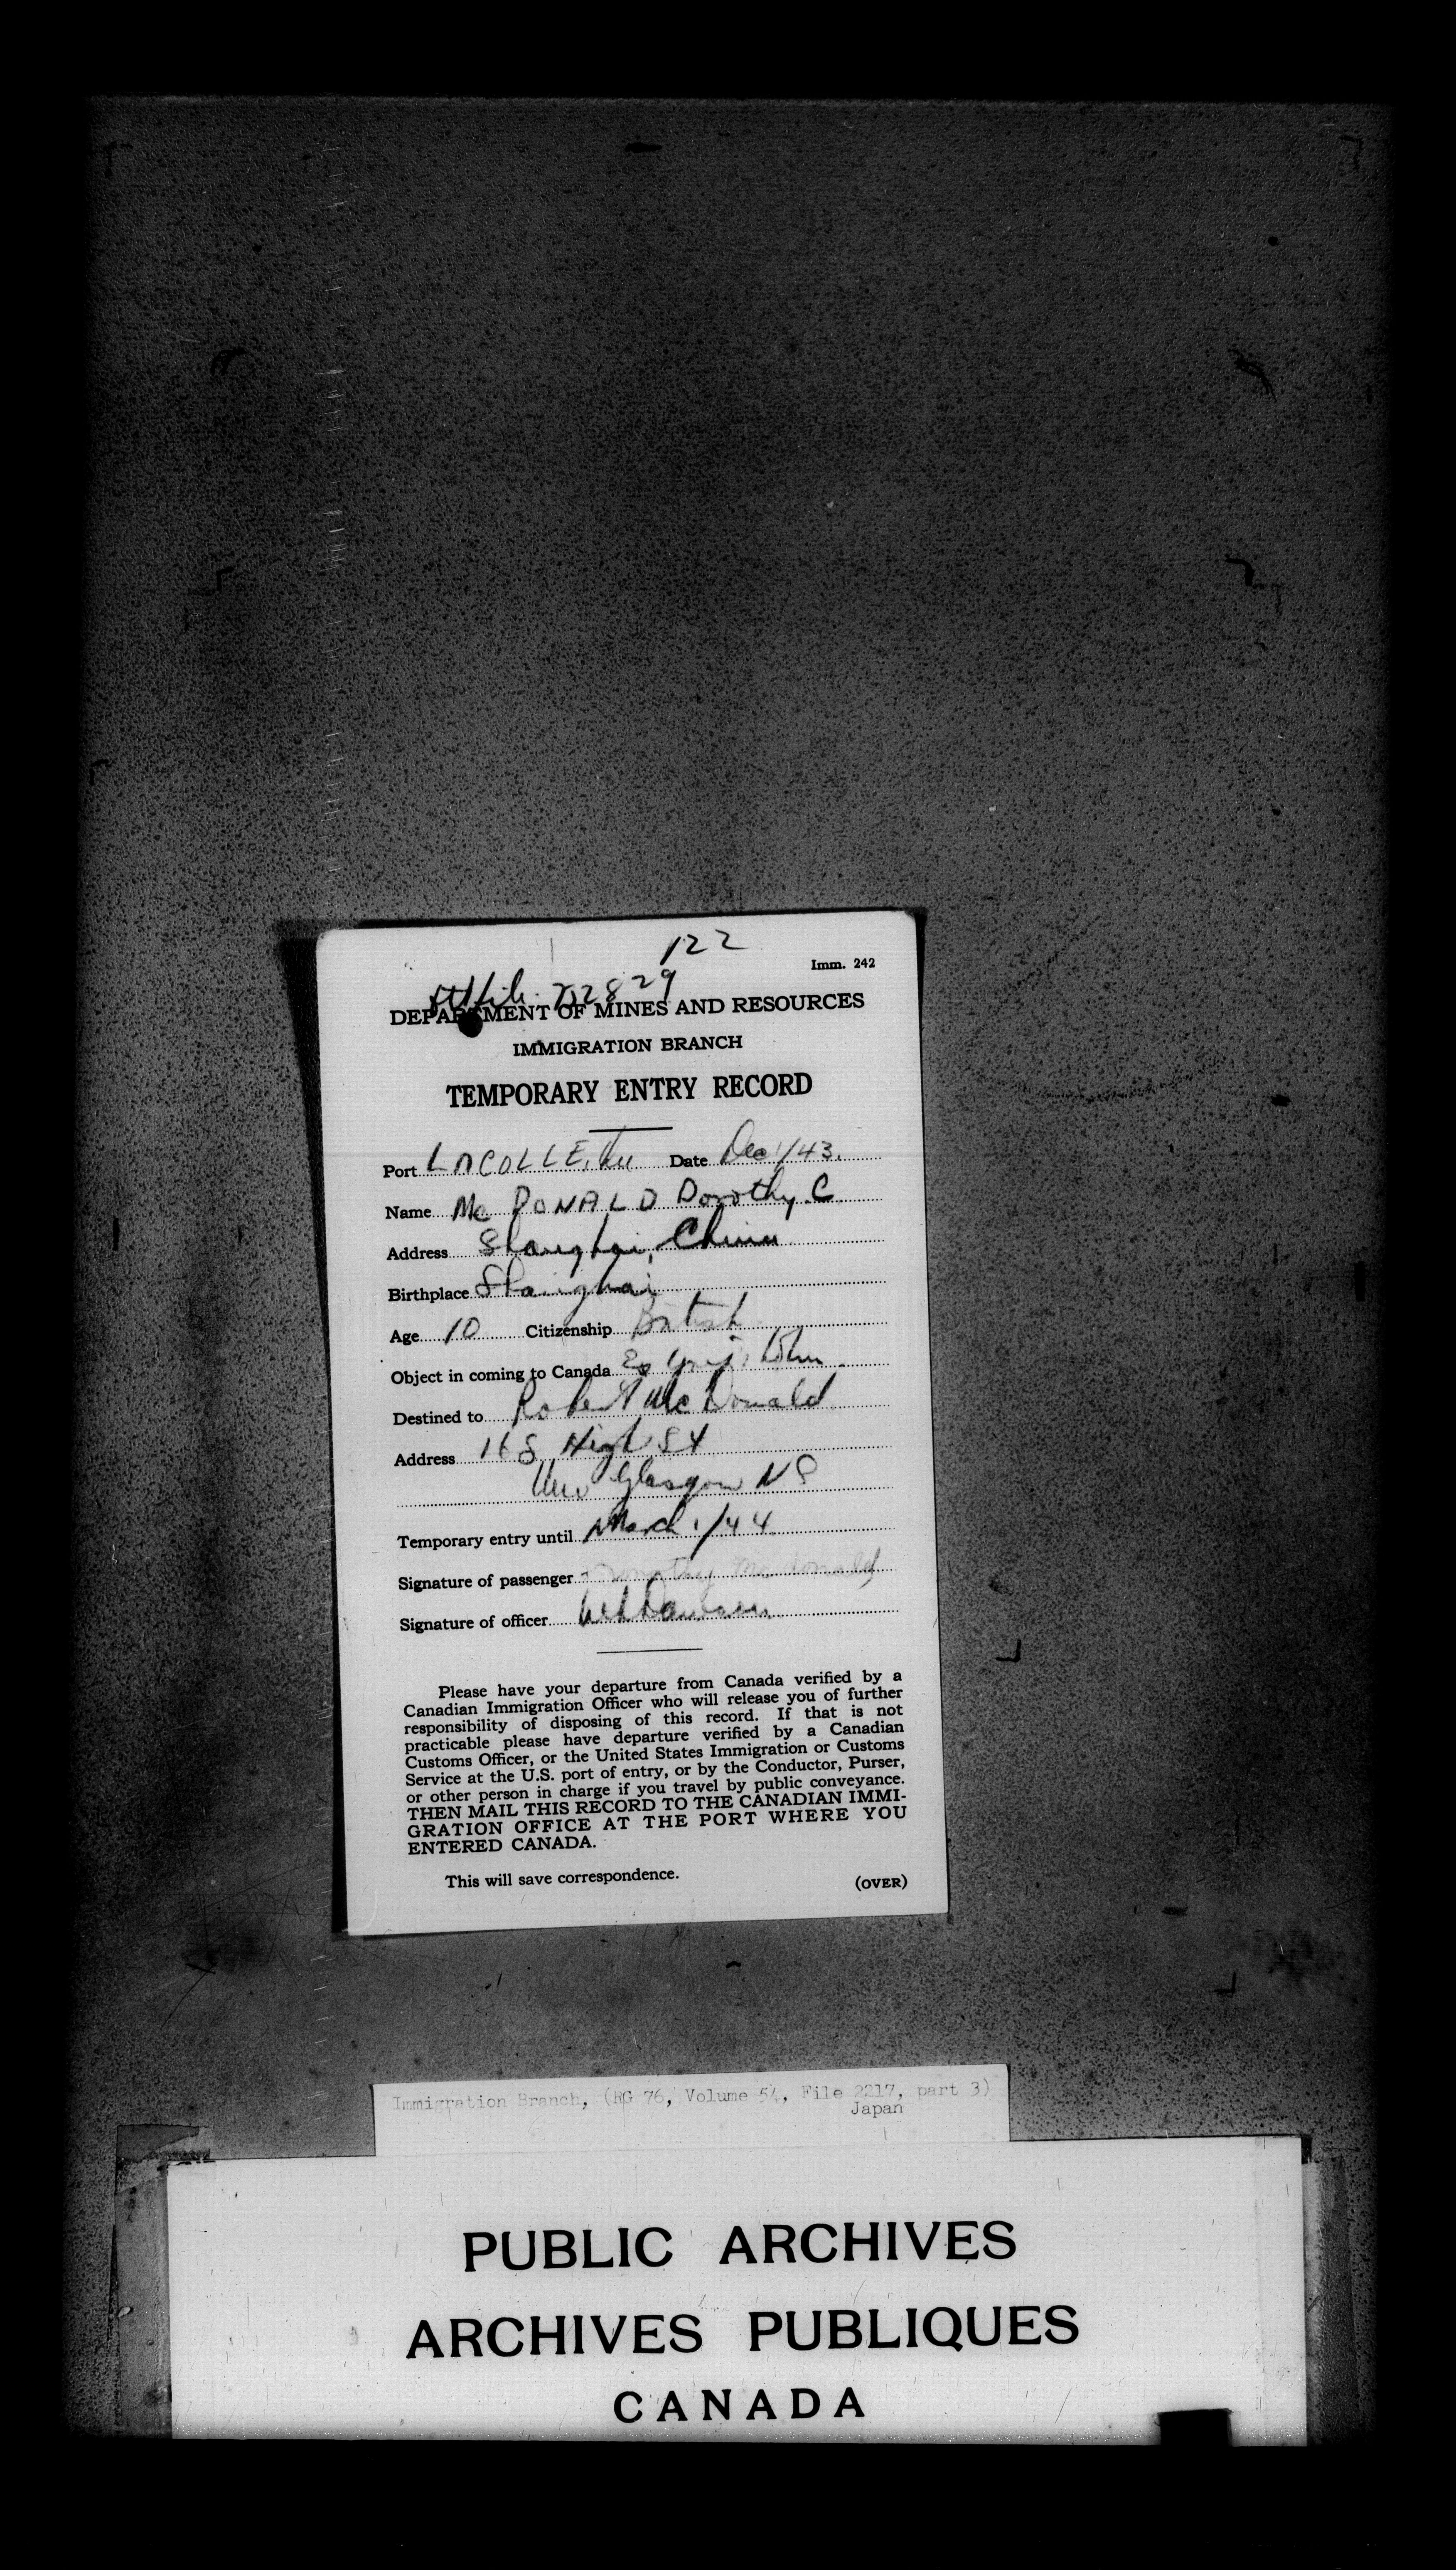 122
Imm. 242
file 702829
DEPARTMENT OF MINES AND RESOURCES
IMMIGRATION BRANCH
TEMPORARY ENTRY RECORD
Port LACOLLE, Date Dec 1/43.
Name Mc DONALD Dorothy C
Address Shanghai, China
Birthplace Shanghai
Age 10 Citizenship British
Object in coming to Canada
Destined to Robert McDonald
Address 168 High St
New Glasgow N S
Temporary entry until March 1/44
Signature of passenger Dorothy Mcdonald
Signature of officer
Please have your departure from Canada verified by a
Canadian Immigration Officer who will release you of further
responsibility of disposing of this record. If that is not
practicable please have departure verified by a Canadian
Customs Officer, or the United States Immigration or Customs
Service at the U.S. port of entry, or by the Conductor, Purser,
or other person in charge if you travel by public conveyance.
THEN MAIL THIS RECORD TO THE CANADIAN IMMI-
GRATION OFFICE AT THE PORT WHERE YOU
ENTERED CANADA.
This will save correspondence.
(OVER)
Immigration Branch, (RG 76, Volume 54, File 2217, part 3)
Japan
PUBLIC ARCHIVES
ARCHIVES PUBLIQUES
CANADA